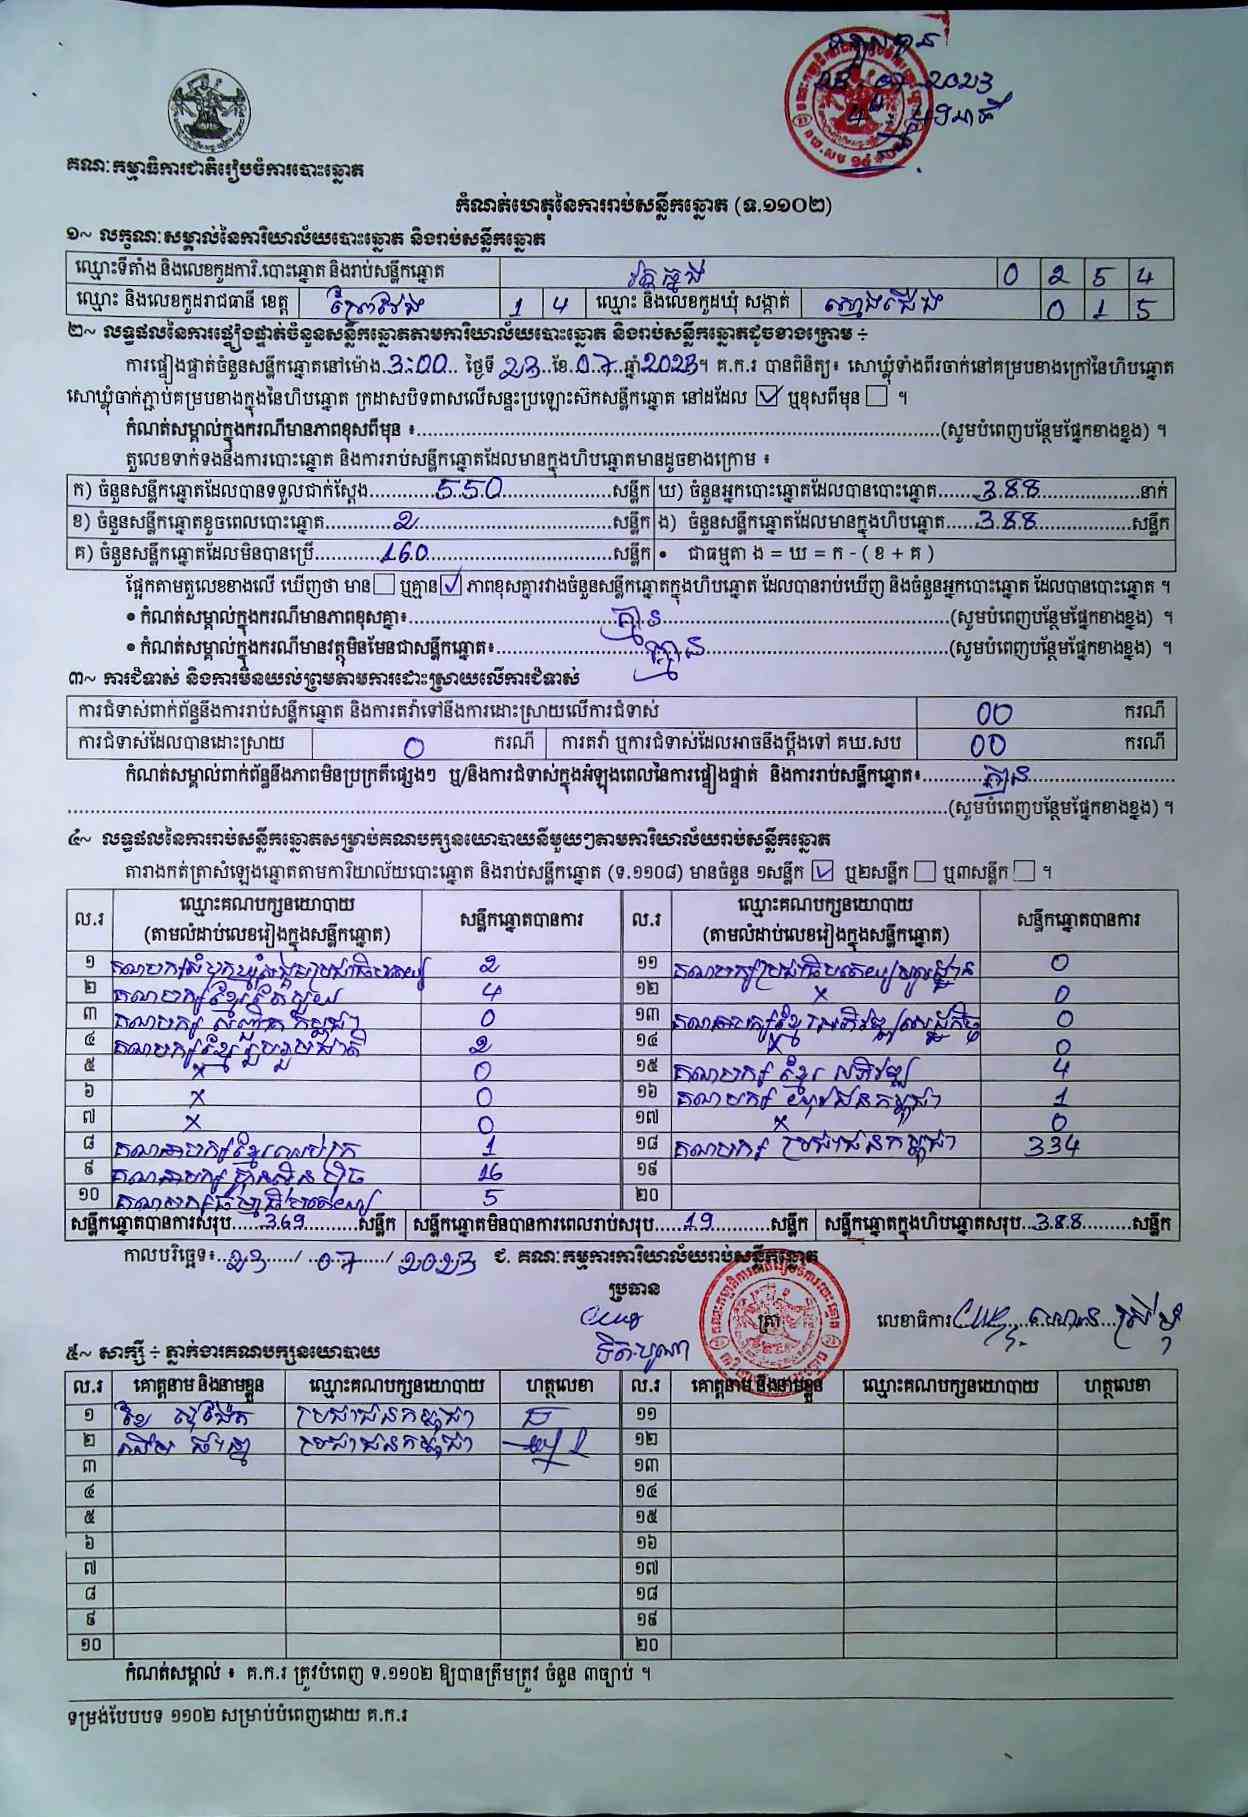 គណៈកម្មាធិការជាតិរៀបចំការបោះឆ្នោត
2023
កំណត់ហេតុនៃការរាប់សន្លឹកឆ្នោត (ទ.១១០២)
១~ លក្ខណៈសម្គាល់នៃការិយាល័យបោះឆ្នោត និងរាប់សន្លឹកឆ្នោត
ឈ្មោះទីតាំង និងលេខកូដការិ.បោះឆ្នោត និងរាប់សន្លឹកឆ្នោត 0 2 5 4
ឈ្មោះ និងលេខកូដរាជធានី ខេត្ត ព្រៃវែង 1 4 ឈ្មោះ និងលេខកូដឃុំ សង្កាត់ 0 1 5
២~ លទ្ធផលនៃការផ្ទៀងផ្ទាត់ចំនួនសន្លឹកឆ្នោតតាមការិយាល័យបោះឆ្នោត និងរាប់សន្លឹកឆ្នោតដូចខាងក្រោម ÷
ការផ្ទៀងផ្ទាត់ចំនួនសន្លឹកឆ្នោតនៅម៉ោង 3:00 ថ្ងៃទី 23 ខែ 07 ឆ្នាំ 2023។ គ.ក.រ បានពិនិត្យ៖ សោឃ្លុំទាំងពីរចាក់នៅគម្របខាងក្រៅនៃហិបឆ្នោត
សោឃ្លុំចាក់ភ្ជាប់គម្របខាងក្នុងនៃហិបឆ្នោត ក្រដាសបិទពាសលើសន្ទះប្រឡោះស៊កសន្លឹកឆ្នោត នៅដដែល ☑ ឬខុសពីមុន ☐ ។
កំណត់សម្គាល់ក្នុងករណីមានភាពខុសពីមុន ៖ (សូមបំពេញបន្ថែមផ្នែកខាងខ្នង) ។
តួលេខទាក់ទងនឹងការបោះឆ្នោត និងការរាប់សន្លឹកឆ្នោតដែលមានក្នុងហិបឆ្នោតមានដូចខាងក្រោម ៖
ក) ចំនួនសន្លឹកឆ្នោតដែលបានទទួលជាក់ស្តែង 550 សន្លឹក ឃ) ចំនួនអ្នកបោះឆ្នោតដែលបានបោះឆ្នោត 388 នាក់
ខ) ចំនួនសន្លឹកឆ្នោតខូចពេលបោះឆ្នោត 2 សន្លឹក ង) ចំនួនសន្លឹកឆ្នោតដែលមានក្នុងហិបឆ្នោត 388 សន្លឹក
គ) ចំនួនសន្លឹកឆ្នោតដែលមិនបានប្រើ 160 សន្លឹក • ជាធម្មតា ង = ឃ = ក - ( ខ + គ )
ផ្អែកតាមតួលេខខាងលើ ឃើញថា មាន ☐ ឬគ្មាន ☑ ភាពខុសគ្នារវាងចំនួនសន្លឹកឆ្នោតក្នុងហិបឆ្នោត ដែលបានរាប់ឃើញ និងចំនួនអ្នកបោះឆ្នោត ដែលបានបោះឆ្នោត ។
• កំណត់សម្គាល់ក្នុងករណីមានភាពខុសគ្នា៖ គ្មាន (សូមបំពេញបន្ថែមផ្នែកខាងខ្នង) ។
• កំណត់សម្គាល់ក្នុងករណីមានវត្ថុមិនមែនជាសន្លឹកឆ្នោត៖ គ្មាន (សូមបំពេញបន្ថែមផ្នែកខាងខ្នង) ។
៣~ ការជំទាស់ និងការមិនយល់ព្រមតាមការដោះស្រាយលើការជំទាស់
ការជំទាស់ពាក់ព័ន្ធនឹងការរាប់សន្លឹកឆ្នោត និងការតវ៉ាទៅនឹងការដោះស្រាយលើការជំទាស់ 00 ករណី
ការជំទាស់ដែលបានដោះស្រាយ 0 ករណី ការតវ៉ា ឬការជំទាស់ដែលអាចនឹងប្តឹងទៅ គឃ.សប 00 ករណី
កំណត់សម្គាល់ពាក់ព័ន្ធនឹងភាពមិនប្រក្រតីផ្សេងៗ ឬ/និងការជំទាស់ក្នុងអំឡុងពេលនៃការផ្ទៀងផ្ទាត់ និងការរាប់សន្លឹកឆ្នោត៖ គ្មាន
(សូមបំពេញបន្ថែមផ្នែកខាងខ្នង) ។
៤~ លទ្ធផលនៃការរាប់សន្លឹកឆ្នោតសម្រាប់គណបក្សនយោបាយនីមួយៗតាមការិយាល័យរាប់សន្លឹកឆ្នោត
តារាងកត់ត្រាសំឡេងឆ្នោតតាមការិយាល័យបោះឆ្នោត និងរាប់សន្លឹកឆ្នោត (ទ.១១០៨) មានចំនួន ១សន្លឹក ☑ ឬ២សន្លឹក ☐ ឬ៣សន្លឹក ☐ ។
ល.រ ឈ្មោះគណបក្សនយោបាយ (តាមលំដាប់លេខរៀងក្នុងសន្លឹកឆ្នោត) សន្លឹកឆ្នោតបានការ ល.រ ឈ្មោះគណបក្សនយោបាយ (តាមលំដាប់លេខរៀងក្នុងសន្លឹកឆ្នោត) សន្លឹកឆ្នោតបានការ
១ គណបក្សសំបុកឃ្មុំសង្គមប្រជាធិបតេយ្យ 2 ១១ គណបក្សប្រជាធិបតេយ្យមូលដ្ឋាន 0
២ គណបក្សខ្មែរតែមួយ 4 ១២ x 0
៣ គណបក្ស កម្ពុជា 0 ១៣ គណបក្សខ្មែរអភិវឌ្ឍន៍សេដ្ឋកិច្ច 0
៤ គណបក្សខ្មែររួបរួមជាតិ 2 ១៤ x 0
៥ x 0 ១៥ គណបក្ស ខ្មែរ អភិវឌ្ឍ 4
៦ x 0 ១៦ គណបក្ស យុវជនកម្ពុជា 1
៧ x 0 ១៧ x 0
៨ គណបក្សខ្មែរ 1 ១៨ គណបក្ស ប្រជាជនកម្ពុជា 334
៩ គណបក្ស ហ្វ៊ុនស៊ិនប៉ិច 16 ១៩
១០ គណបក្សធម្មាធិបតេយ្យ 5 ២០
សន្លឹកឆ្នោតបានការសរុប 369 សន្លឹក សន្លឹកឆ្នោតមិនបានការពេលរាប់សរុប 19 សន្លឹក សន្លឹកឆ្នោតក្នុងហិបឆ្នោតសរុប 388 សន្លឹក
កាលបរិច្ឆេទ៖ 23 / 07 / 2023 ជ. គណៈកម្មការការិយាល័យរាប់សន្លឹកឆ្នោត
ប្រធាន
ត្រា លេខាធិការ
៥~ សាក្សី ÷ ភ្នាក់ងារគណបក្សនយោបាយ
ល.រ គោត្តនាម និងនាមខ្លួន ឈ្មោះគណបក្សនយោបាយ ហត្ថលេខា ល.រ គោត្តនាម និងនាមខ្លួន ឈ្មោះគណបក្សនយោបាយ ហត្ថលេខា
១ ប្រជាជនកម្ពុជា ១១
២ ប្រជាជនកម្ពុជា ១២
៣ ១៣
៤ ១៤
៥ ១៥
៦ ១៦
៧ ១៧
៨ ១៨
៩ ១៩
១០ ២០
កំណត់សម្គាល់ ៖ គ.ក.រ ត្រូវបំពេញ ទ.១១០២ ឱ្យបានត្រឹមត្រូវ ចំនួន ៣ច្បាប់ ។
ទម្រង់បែបបទ ១១០២ សម្រាប់បំពេញដោយ គ.ក.រ